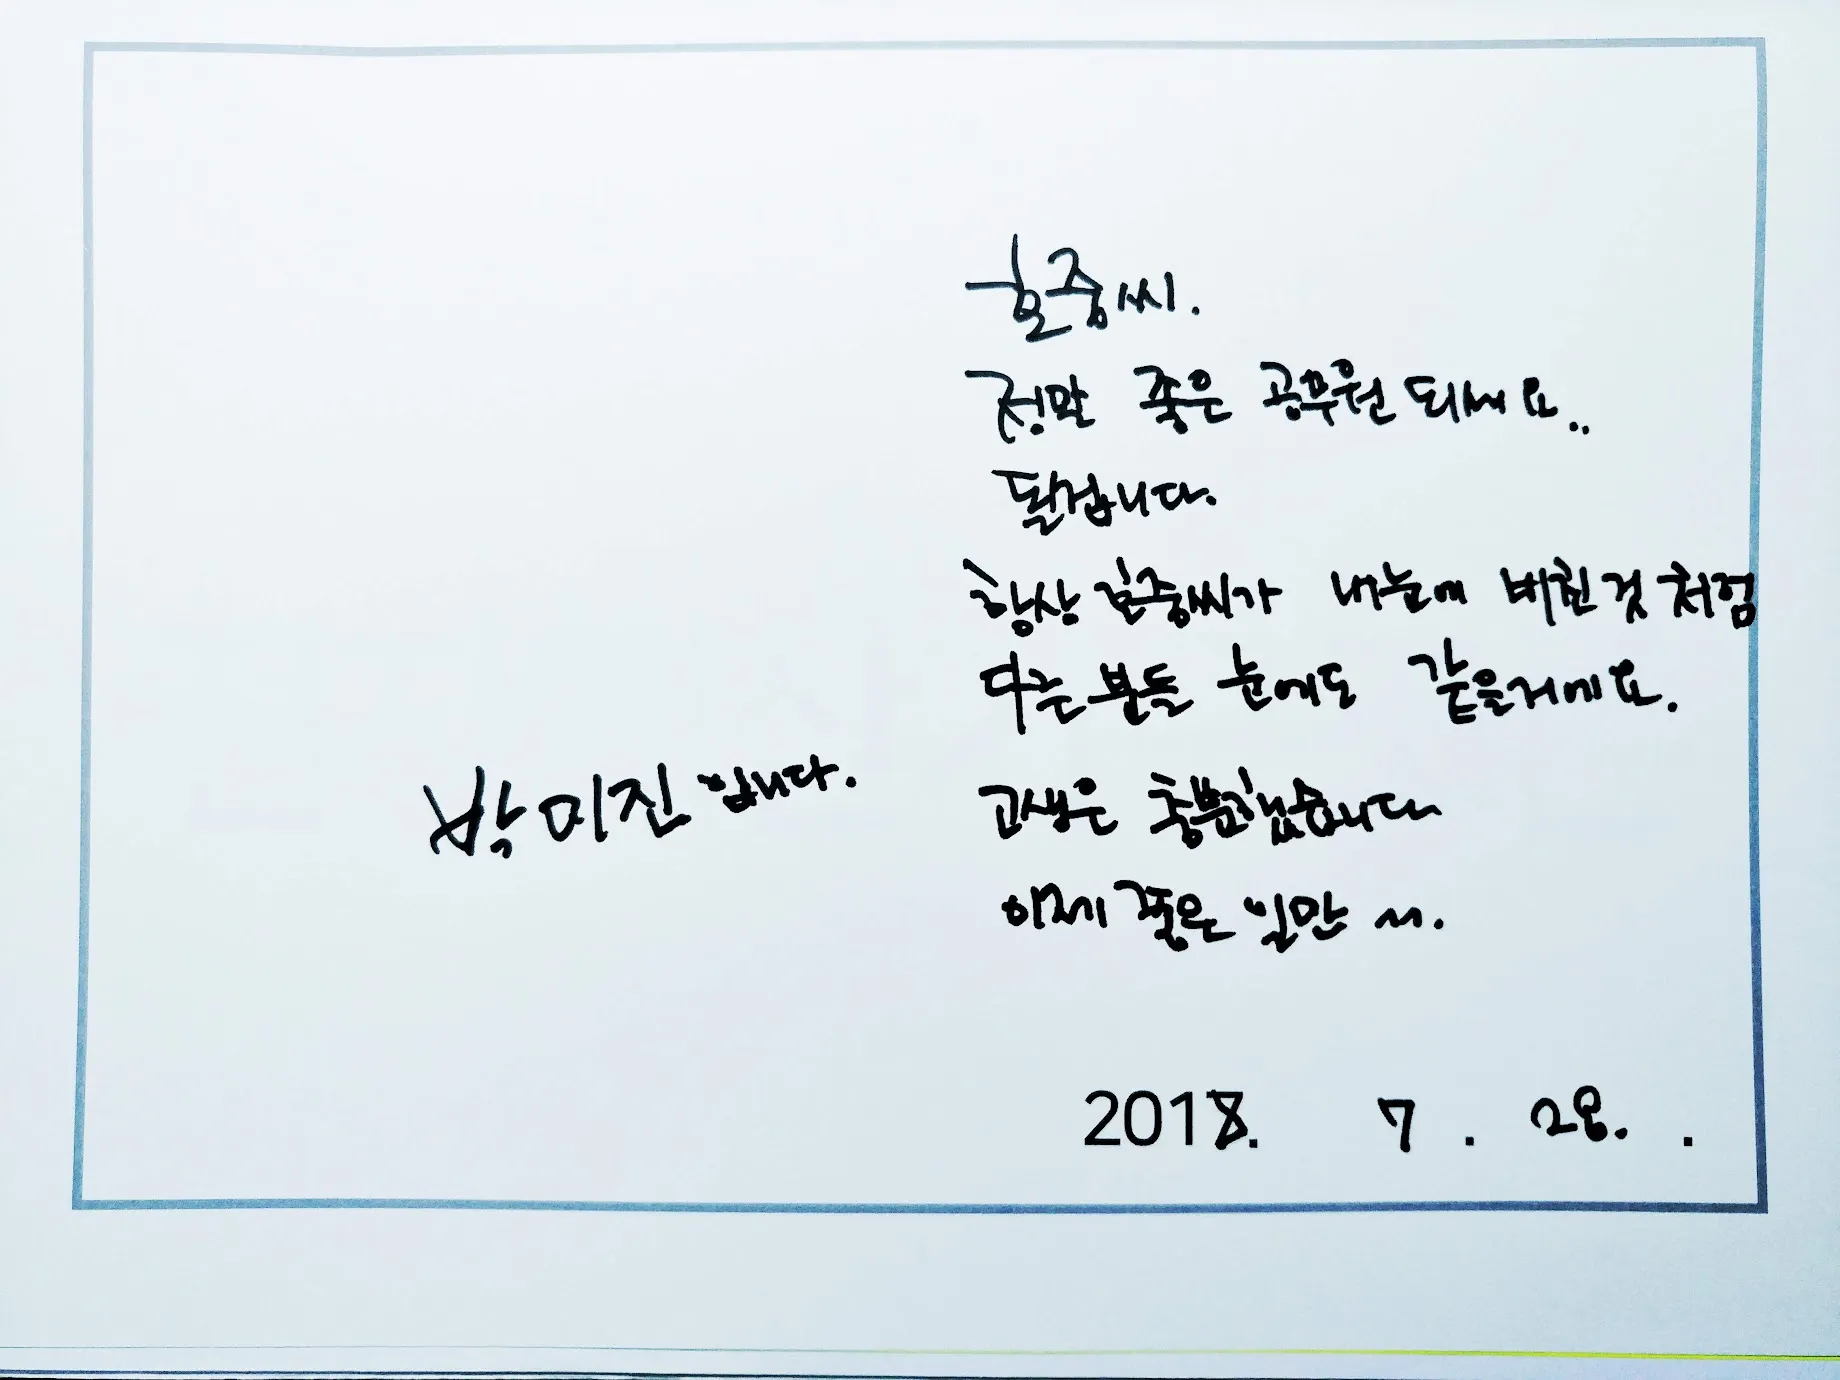 중씨.
정말 좋은 공무원 되세요..
될겁니다.
항상 김중씨가 내눈에 비친것 처럼
다른 분들 눈에도 같을거에요.
고생은 충분했습니다
이제 좋은 일만 ~.
박미진 입니다.
2018. 7 . 28. .